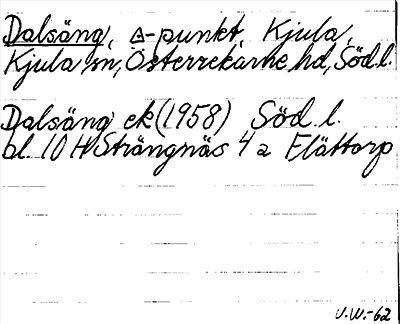 Dalsäng, △-punkt, Kjula,
Kjula sn, Österrekarne hd, Söd.l.
Dalsäng ek (1958) Söd.l.
bl. 10 H Strängnäs 4 a Flättorp
V.W.-62